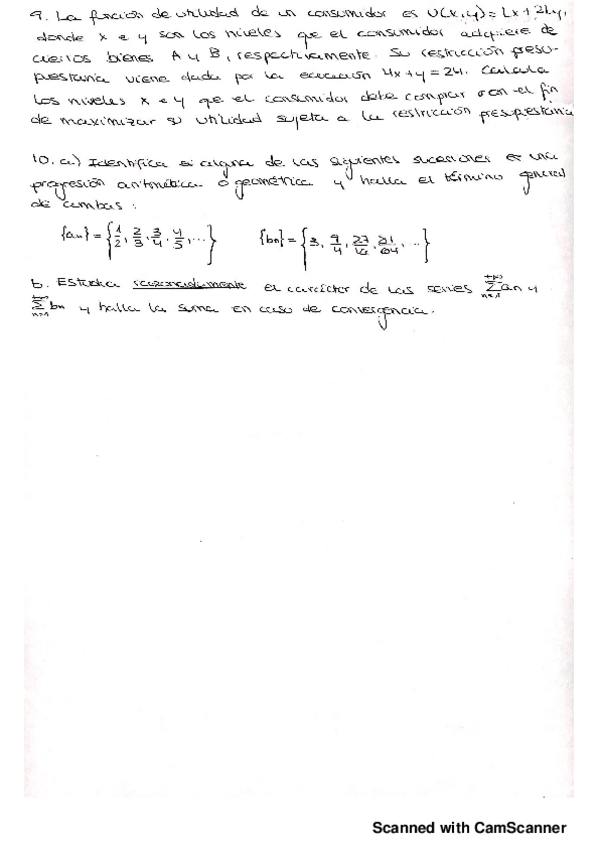 9. La función de utilidad de un consumidor es U(x,y)=Lx+2Ly,
donde x e y son los niveles que el consumidor adquiere de
ciertos bienes A y B, respectivamente. Su restricción presu-
pestaria viene dada por la ecuación 4x+y=24. Calcula
los niveles x e y que el consumidor debe comprar con el fin
de maximizar su utilidad sujeta a la restricción presupestaria
10. a) Identifica si alguna de las siguientes sucesiones es una
progresión aritmética o geométrica y halla el término general
de ambas:
{an}={1/2, 2/3, 3/4, 4/5, ...} {bn}={3, 9/4, 27/16, 81/64, ...}
b. Estudia razonadamente el carácter de las series +∞Σn=1 an y
+∞Σn=1 bn y halla la suma en caso de convergencia.
Scanned with CamScanner